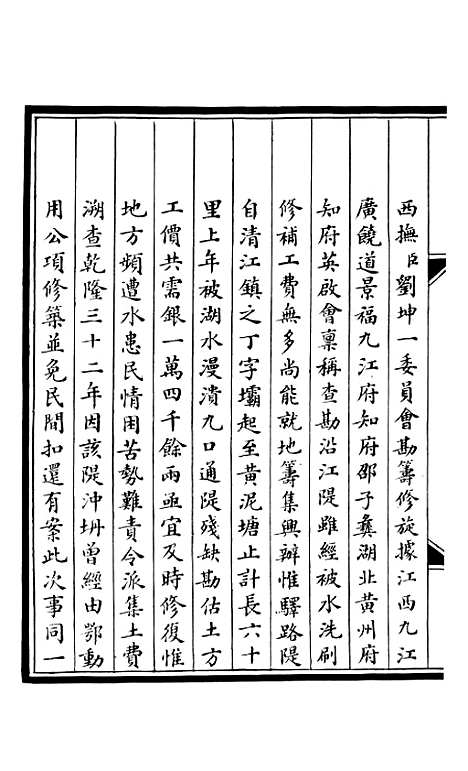 西撫臣劉坤一委員會勘籌修旋據江西九江
廣饒道景福九江府知府邵子彝湖北黃州府
知府英啟會稟稱查勘沿江隄雖經被水洗刷
修補工費無多尚能就地籌集興辦惟驛路隄
自清江鎮之丁字壩起至黃泥塘止計長六十
里上年被湖水漫潰九口通隄殘缺勘估土方
工價共需銀一萬四千餘兩亟宜及時修復惟
地方頻遭水患民情困苦勢難責令派集土費
溯查乾隆三十二年因該隄沖坍曾經由鄂動
用公項修築並免民間扣還有案此次事同一